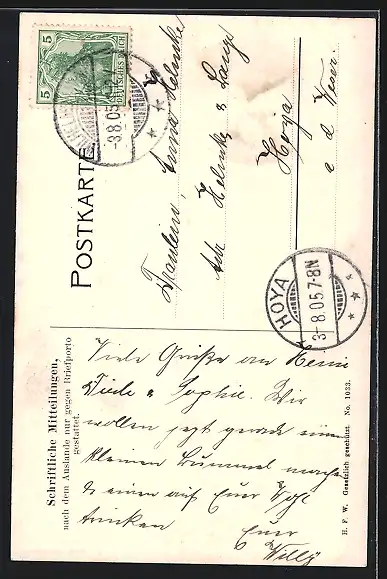 5 DEUTSCHES REICH 5
-3.8.05
POSTKARTE
Fräulein Anna Helmke
Adr. Helmke & Lange
Hoya
a d Weser.
HOYA
3-8.05.7-8N
Schriftliche Mitteilungen,
nach dem Auslande nur gegen Briefporto
gestattet.
Viele Grüße an Heini
Diele & Sophie. Wir
wollen jetzt gerade einen
kleinen Bummel machen
& einen auf Euer Wohl
trinken
Euer
Willy
H. F. W. Gesetzlich geschützt. No. 1033.